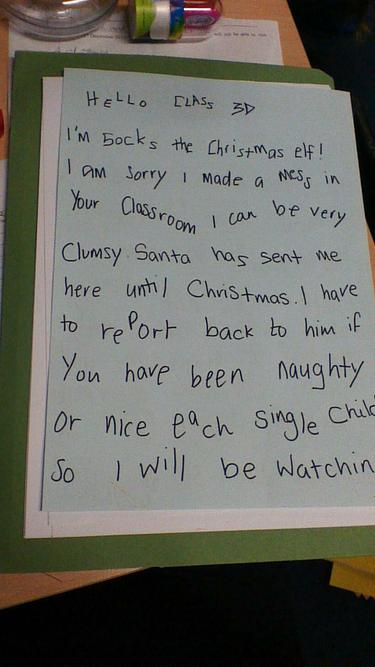 HELLO CLASS 3D
I'm Socks the Christmas elf!
I am sorry I made a mess in
Your Classroom I can be very
Clumsy Santa has sent me
here until Christmas. I have
to rePort back to him if
You have been naughty
Or nice each Single Child
So I will be watchin